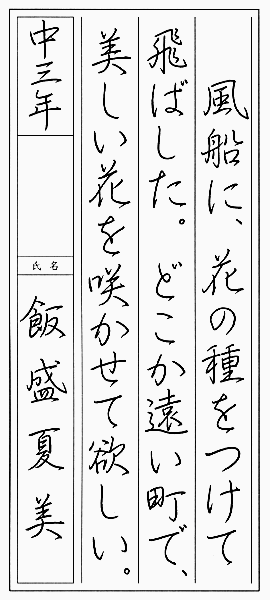 風船に、花の種をつけて
飛ばした。どこか遠い町で、
美しい花を咲かせて欲しい。
中三年
氏名
飯盛夏美